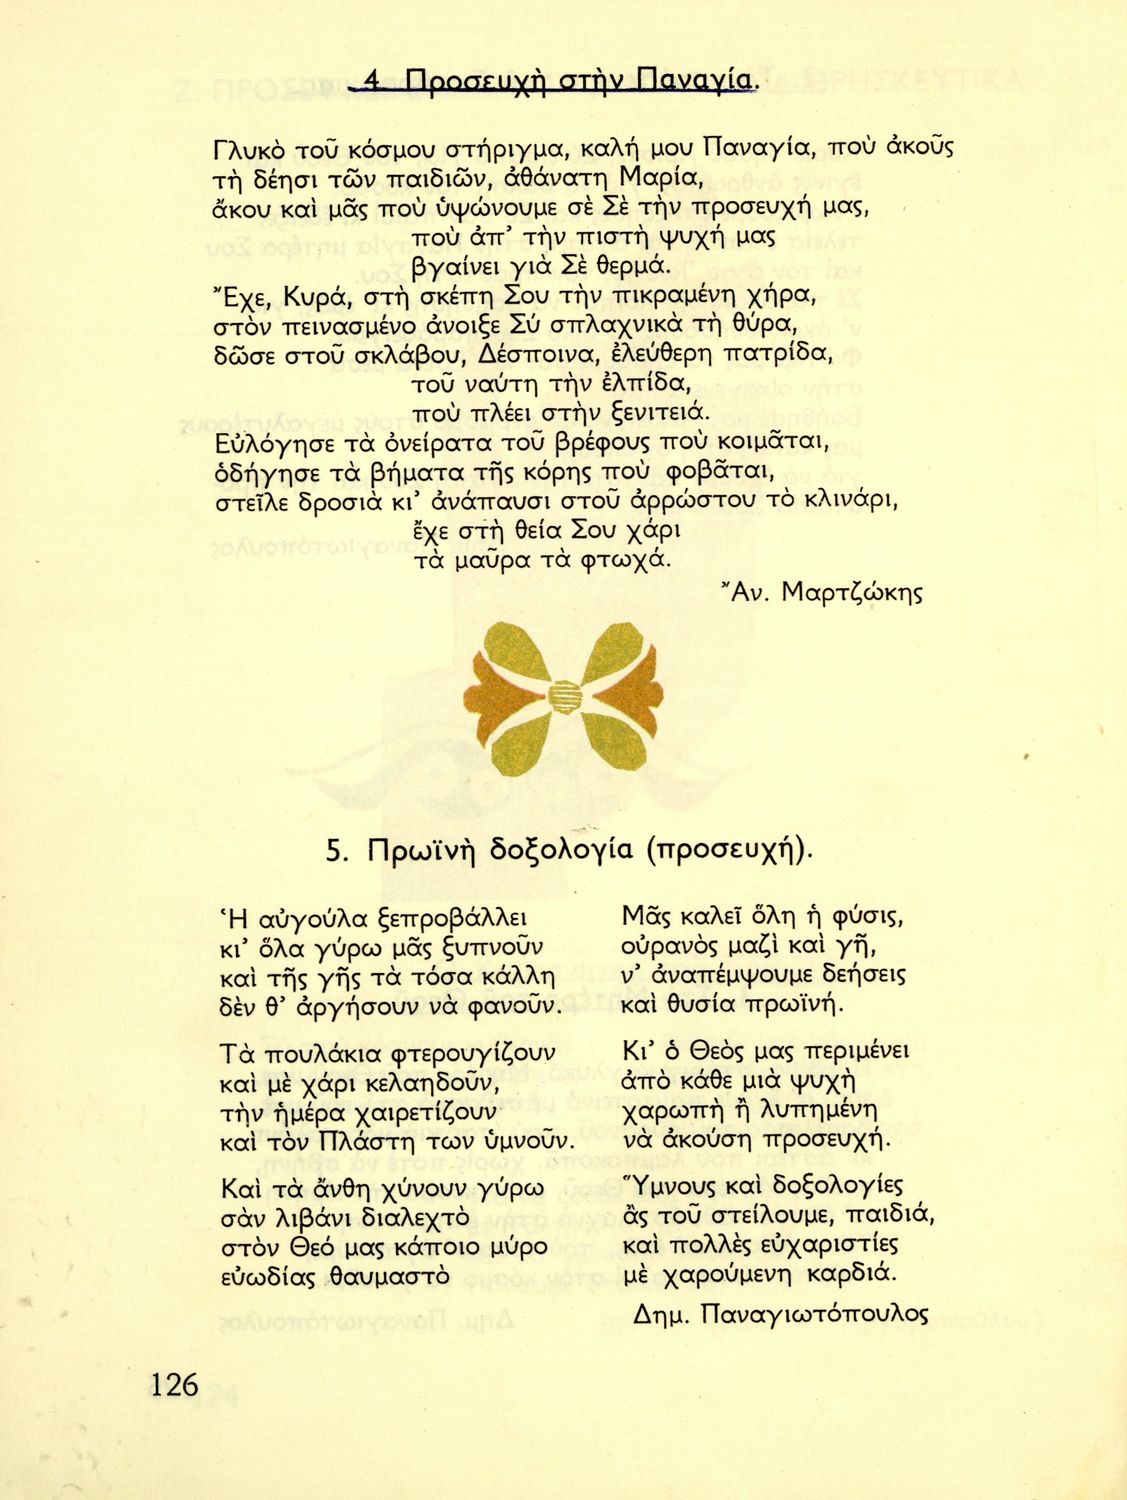 4. Προσευχὴ στὴν Παναγία.
Γλυκὸ τοῦ κόσμου στήριγμα, καλή μου Παναγία, ποὺ ἀκοῦς
τὴ δέησι τῶν παιδιῶν, ἀθάνατη Μαρία,
ἄκου καὶ μᾶς ποὺ ὑψώνουμε σὲ Σὲ τὴν προσευχή μας,
ποὺ ἀπ’ τὴν πιστὴ ψυχή μας
βγαίνει γιὰ Σὲ θερμά.
Ἔχε, Κυρά, στὴ σκέπη Σου τὴν πικραμένη χήρα,
στὸν πεινασμένο ἀνοιξε Σύ σπλαχνικὰ τὴ θύρα,
δῶσε στοῦ σκλάβου, Δέσποινα, ἐλεύθερη πατρίδα,
τοῦ ναύτη τὴν ἐλπίδα,
ποὺ πλέει στὴν ξενιτειά.
Εὐλόγησε τὰ ὀνείρατα τοῦ βρέφους ποὺ κοιμᾶται,
ὁδήγησε τὰ βήματα τῆς κόρης ποὺ φοβᾶται,
στεῖλε δροσιὰ κι’ ἀνάπαυσι στοῦ ἀρρώστου τὸ κλινάρι,
ἔχε στὴ θεία Σου χάρι
τὰ μαῦρα τὰ φτωχά.
Ἀν. Μαρτζώκης
5. Πρωϊνὴ δοξολογία (προσευχή).
Ἡ αὐγούλα ξεπροβάλλει
κι’ ὅλα γύρω μᾶς ξυπνοῦν
καὶ τῆς γῆς τὰ τόσα κάλλη
δὲν θ’ ἀργήσουν νὰ φανοῦν.
Τὰ πουλάκια φτερουγίζουν
καὶ μὲ χάρι κελαηδοῦν,
τὴν ἡμέρα χαιρετίζουν
καὶ τὸν Πλάστη των ὑμνοῦν.
Καὶ τὰ ἄνθη χύνουν γύρω
σὰν λιβάνι διαλεχτὸ
στὸν Θεό μας κάποιο μύρο
εὐωδίας θαυμαστὸ
Μᾶς καλεῖ ὅλη ἡ φύσις,
οὐρανὸς μαζὶ καὶ γῆ,
ν’ ἀναπέμψουμε δεήσεις
καὶ θυσία πρωϊνή.
Κι’ ὁ Θεὸς μας περιμένει
ἀπὸ κάθε μιὰ ψυχὴ
χαρωπὴ ἢ λυπημένη
νὰ ἀκούση προσευχή.
Ὕμνους καὶ δοξολογίες
ἂς τοῦ στείλουμε, παιδιά,
καὶ πολλὲς εὐχαριστίες
μὲ χαρούμενη καρδιά.
Δημ. Παναγιωτόπουλος
126